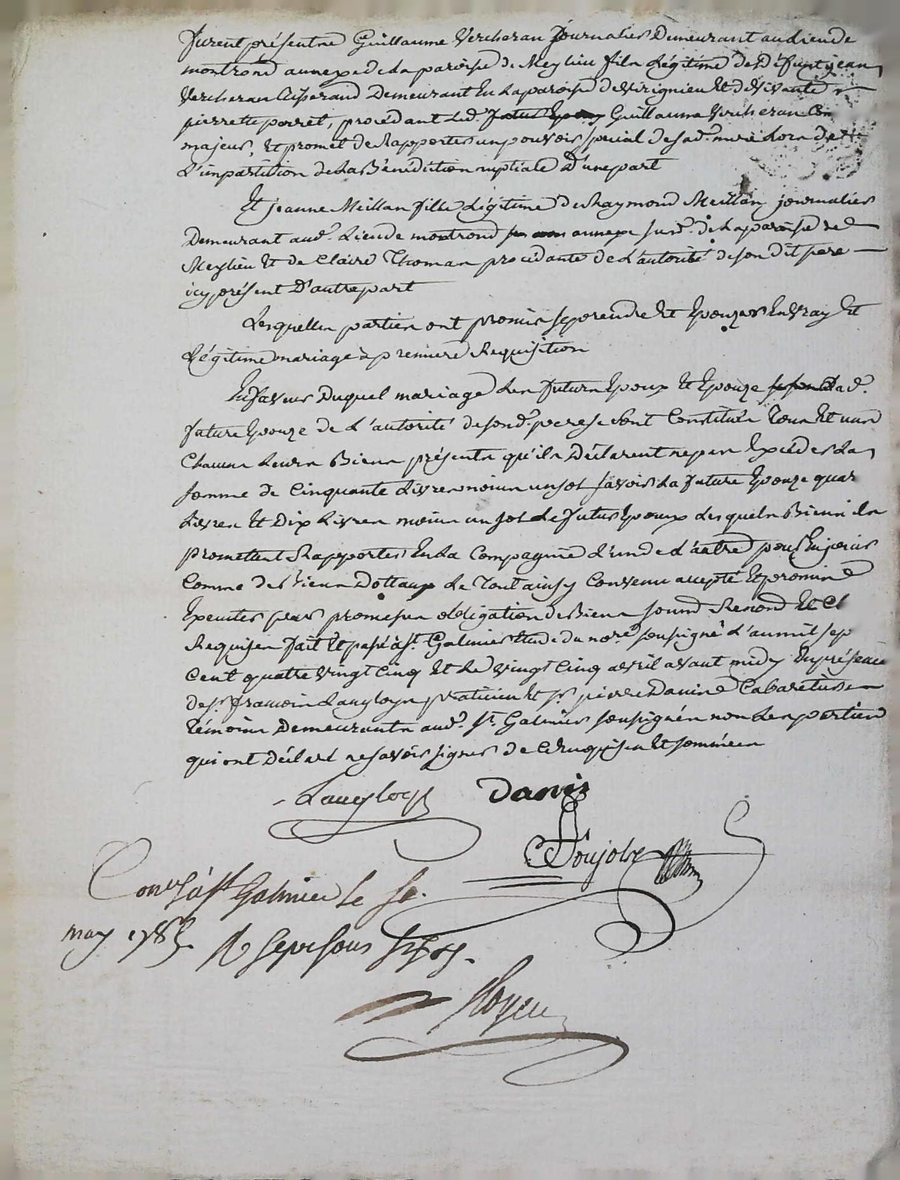 furent présents Guillaume Vercheran Journalier Demeurant au Lieu de
montrond annexe de La paroisse de Meylieu fils Légitime des Défunt jean
Vercheran Demeurant En La paroisse de Virignieu Et de Vivante
pierrette porret, procédant Led. Guillaume Vercheran Com
majeur, Et promet de Rapporter un pouvoir spécial de sad. mere Lors de
L'impartition de La Bénédiction nuptiale D'une part
Et jeanne Meillan fille Légitime de Raymond Meillan journalier
Demeurant aud. Lieu de montrond annexe susd. de La paroisse de
Meylieu Et de Claire Thomas procédante de L'autorité de son dit pere
icy présent D'autre part
Lesquelles parties ont promis se prendre Et Epouzer En Vray Et
Légitime mariage à premiere Requisition
En faveur Duquel mariage Les futurs Epoux Et Epouze Lad.
future Epouze de L'autorité de sond. pere se sont Constitués Tous Et uns
Chacun Leurs Biens présents qu'ils Déclarent ne pas Excéder La
somme de Cinquante Livres moins un sol savoir La future Epouze quar
Livres Et Dix Livres moins un sol Le futur Epoux Lesquels Biens ils
promettent Rapporter En La Compagnie L'un de L'autre pour En jouir
Comme de Biens Dottaux Le Tout ainsy Convenu accepté Et promis
Executer par promesse obligation de Biens soumd. Renond. Et Cl
Requises fait Et passé à St. Galmier Etude du nore. soussigné L'an mil sep
Cent quatre Vingt Cinq Et Le Vingt Cinq avril avant midy En présence
de sr. françois Langloys praticien Et sr. pierre Danis Cabaretier
Témoins Demeurants aud. St. Galmier soussignés non Les parties
qui ont Déclaré ne savoir signer de Ce Requises Et sommées
Langloys Danis
Poujolz
Con. à St Galmier le
may 1785. R sept sous